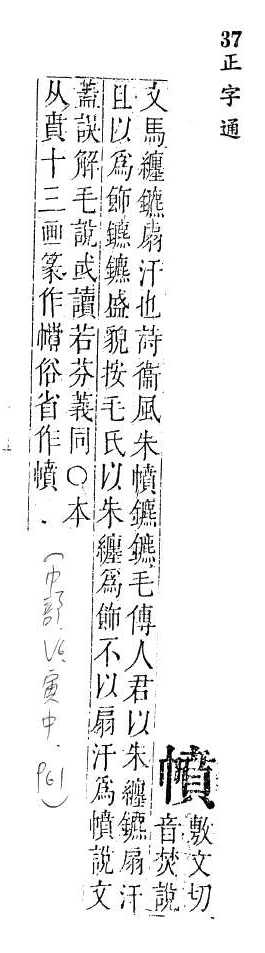 37 正字通
幩
敷文切
音焚說
文馬纏鑣扇汗也詩衞風朱幩鑣鑣毛傳人君以朱纏鑣扇汗
且以爲飾鑣鑣盛貌按毛氏以朱纏爲飾不以扇汗爲幩說文
蓋誤解毛說或讀若芬義同○本
从賁十三画篆作俗省作幩
(巾部, 寅中. P61)